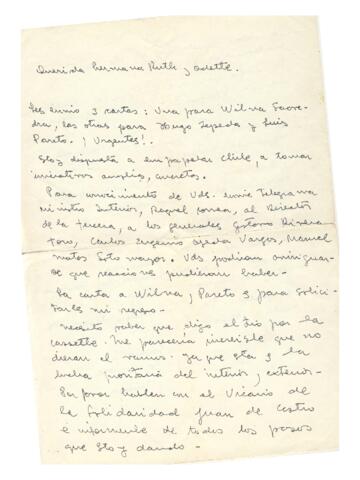 Querida hermana Ruth y Odette.
Les envio 3 cartas: Una para Wilna Saave-
dra, las otras para Hugo Zepeda y Luis
Pareto. ¡Urgentes!.
Estoy dispuesta a empapelar Chile, a tomar
iniciativas amplias, concretas.
Para conocimiento de Uds. envie Telegrama
ministro Interior, Raquel Correa, al Director
de la Tercera, a los generales Gustavo Rivera
Toro, Carlos Eugenio Ojeda Vargas, Manuel
Matas Soto mayor. Uds podrian averiguar
de que reacciones pudieron haber-
La carta a Wilna, Pareto es para solici-
tarles mi regreso-
Necesito saber que dijo el Tio por la
cassette. Me pareceria increible que no
dieran el vamos. Ya que esta es la
lucha del interior y exterior-
Por favor hablen con el Vicario de
la Solidaridad Juan de Castro
é informenle de todos los pasos
que estoy dando-